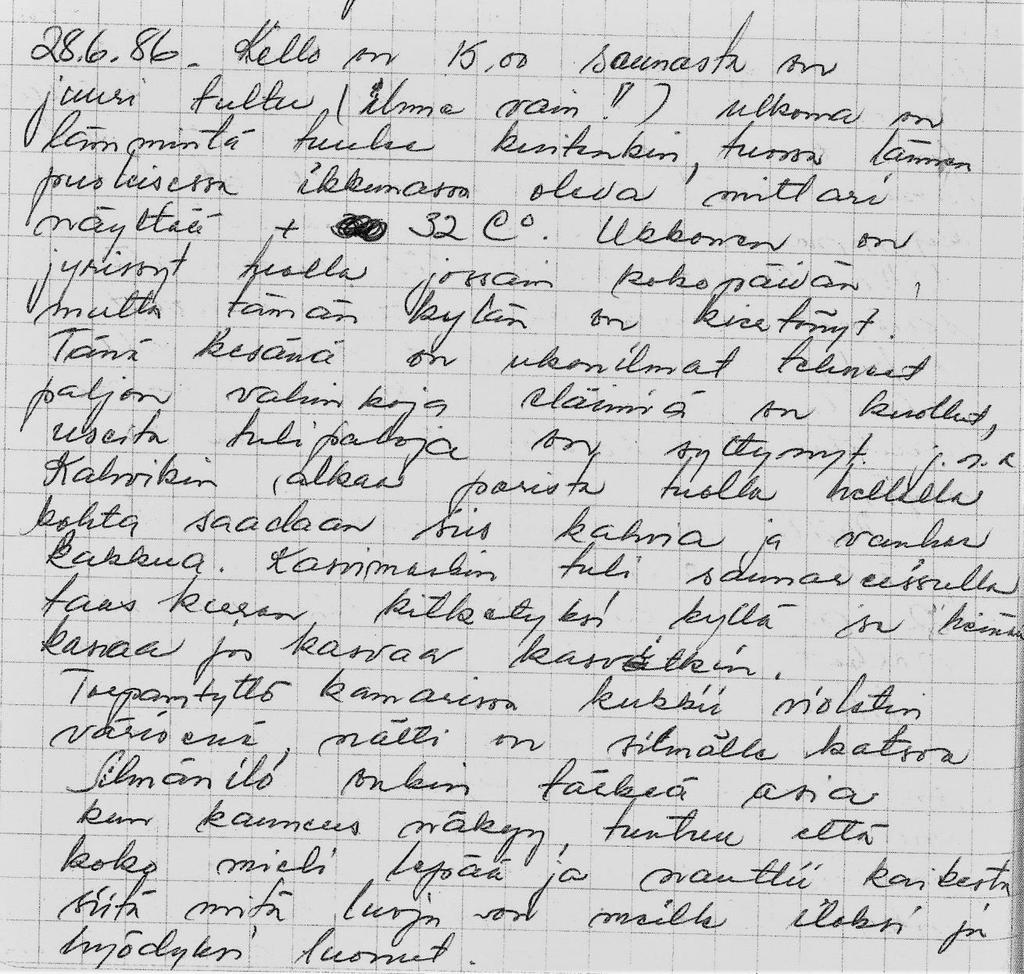 28.6.86. Kello on 15.00 saunasta on
juuri tultu, (ilma vain!!) ulkona on
lämmintä tuulee kuitenkin, tuossa lännen
puoleisessa ikkunassa oleva mittari
näyttää + 32 C°. Ukkonen on
jyrissyt tuolla jossain koko päivän,
mutta tämän kylän on kiertänyt.
Tänä kesänä on ukonilmat tehneet
paljon vahinkoja eläimiä on kuollut,
useita tulipaloja on syttynyt. j.n.e
Kahvikin alkaa porista tuolla hellalla
kohta saadaan siis kahvia ja vanhaa
kakkua. Kasvimaakin tuli saunareissulla
taas kerran kitketyksi kyllä se heinä
kasvaa jos kasvaa kasvitkin.
Topparityttö kamarissa kukkii violetin
värisenä, nätti on silmälle katsoa
Silmänilo onkin tärkeä asia
kun kauneus näkyy, tuntuu että
koko mieli lepää ja nauttii kaikesta
siitä mitä luoja on meille iloksi ja
hyödyksi luonut.